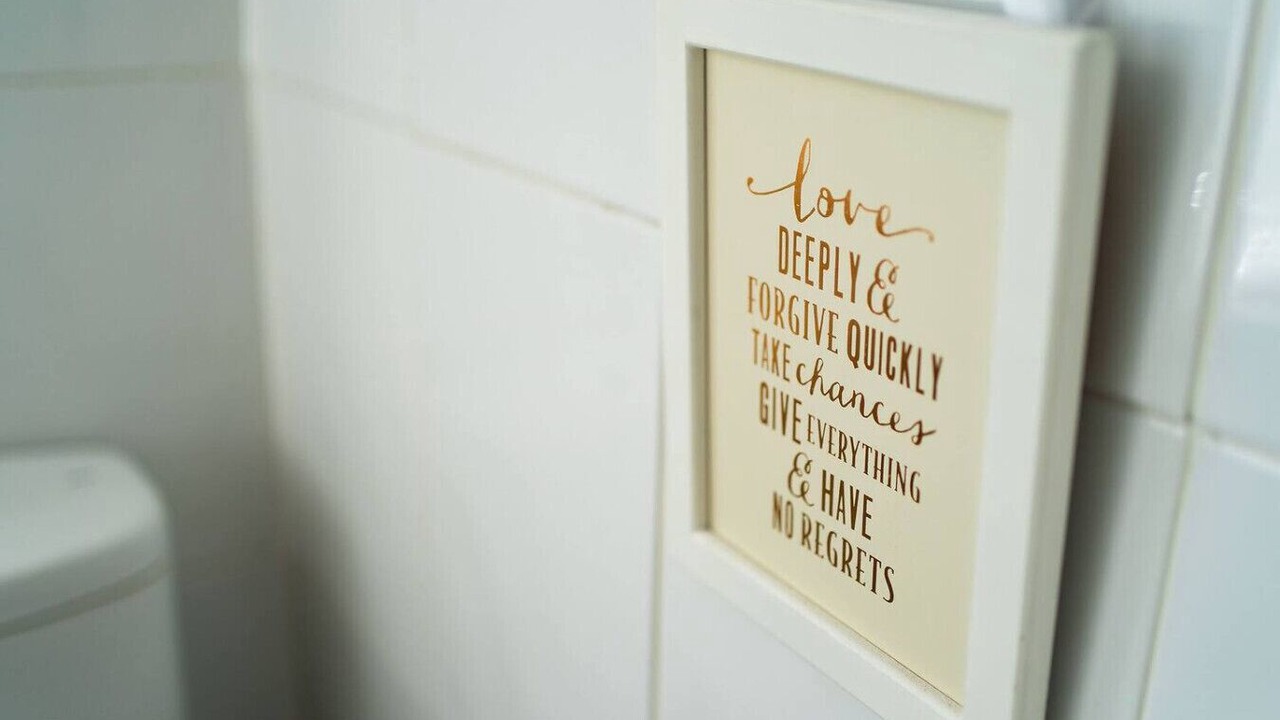 love
DEEPLY &
FORGIVE QUICKLY
TAKE chances
GIVE EVERYTHING
& HAVE
NO REGRETS